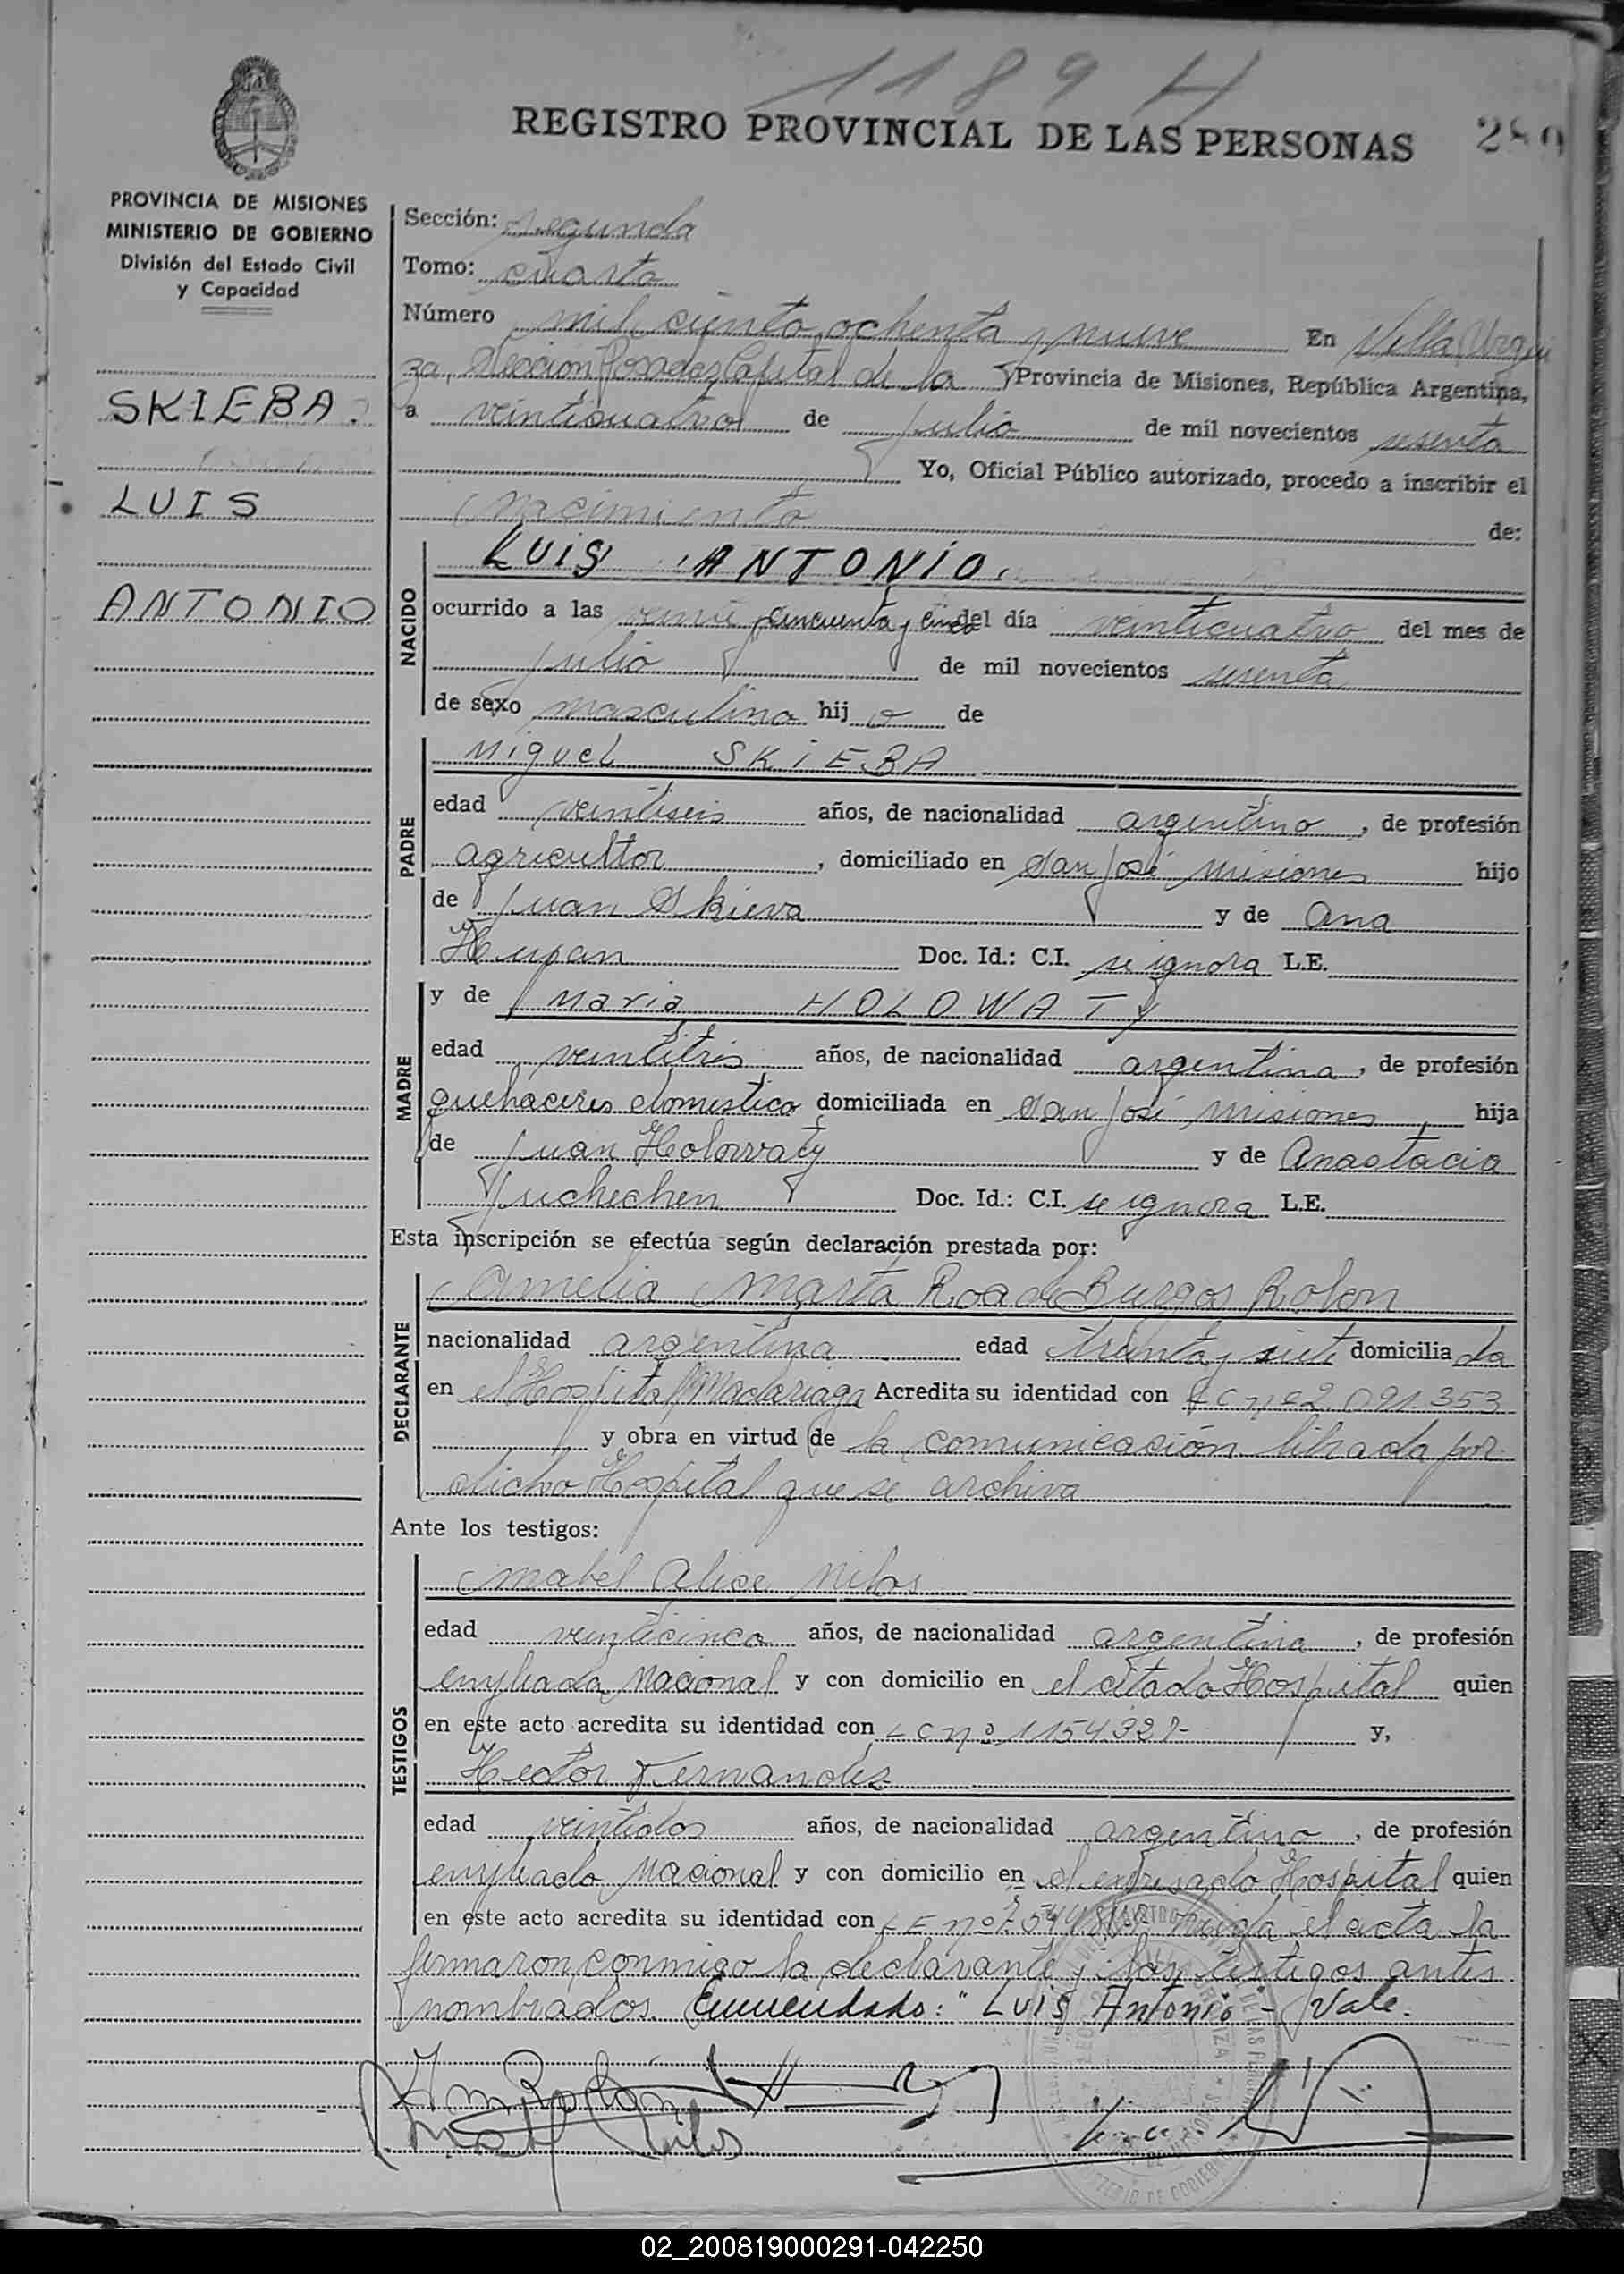 1189 H
REGISTRO PROVINCIAL DE LAS PERSONAS
PROVINCIA DE MISIONES
MINISTERIO DE GOBIERNO
División del Estado Civil
y Capacidad
SKIEBA
LUIS
ANTONIO
Sección: segunda
Tomo: cuarto
Número mil ciento ochenta y nueve En Villa Urqui
za, Seccion Posadas Capital de la Provincia de Misiones, República Argentina,
a veinticuatro de julio de mil novecientos sesenta
Yo, Oficial Público autorizado, procedo a inscribir el
nacimiento de:
NACIDO
LUIS ANTONIO
ocurrido a las veinte y cincuenta y cinco del día veinticuatro del mes de
julio de mil novecientos sesenta
de sexo masculino hij o de
PADRE
Miguel SKIEBA
edad veintiseis años, de nacionalidad argentino, de profesión
agricultor, domiciliado en San José Misiones hijo
de Juan Skieva y de Ana
Hupan Doc. Id.: C.I. se ignora L.E.
MADRE
y de Maria HOLOWATY
edad veintitres años, de nacionalidad argentina, de profesión
quehaceres domestico domiciliada en San José Misiones hija
de Juan Holowaty y de Anastacia
Juchechen Doc. Id.: C.I. se ignora L.E.
Esta inscripción se efectúa según declaración prestada por:
DECLARANTE
Amelia Marta Roa de Burgos Rolon
nacionalidad argentina edad treinta y siete domicilia da
en el Hospital Madariaga Acredita su identidad con LC nº 2.091.353
y obra en virtud de la comunicación librada por
dicho Hospital que se archiva
Ante los testigos:
TESTIGOS
Mabel Alice Nilos
edad veinticinco años, de nacionalidad argentina, de profesión
empleada Nacional y con domicilio en el citado Hospital quien
en este acto acredita su identidad con LC nº 1154329- y,
Hector Fernandez
edad veintidos años, de nacionalidad argentino, de profesión
empleado Nacional y con domicilio en el expresado Hospital quien
en este acto acredita su identidad con LE nº el acta la
firmaron conmigo la declarante y los testigos antes
nombrados. Enmendado: "Luis Antonio - Vale.
02_200819000291-042250